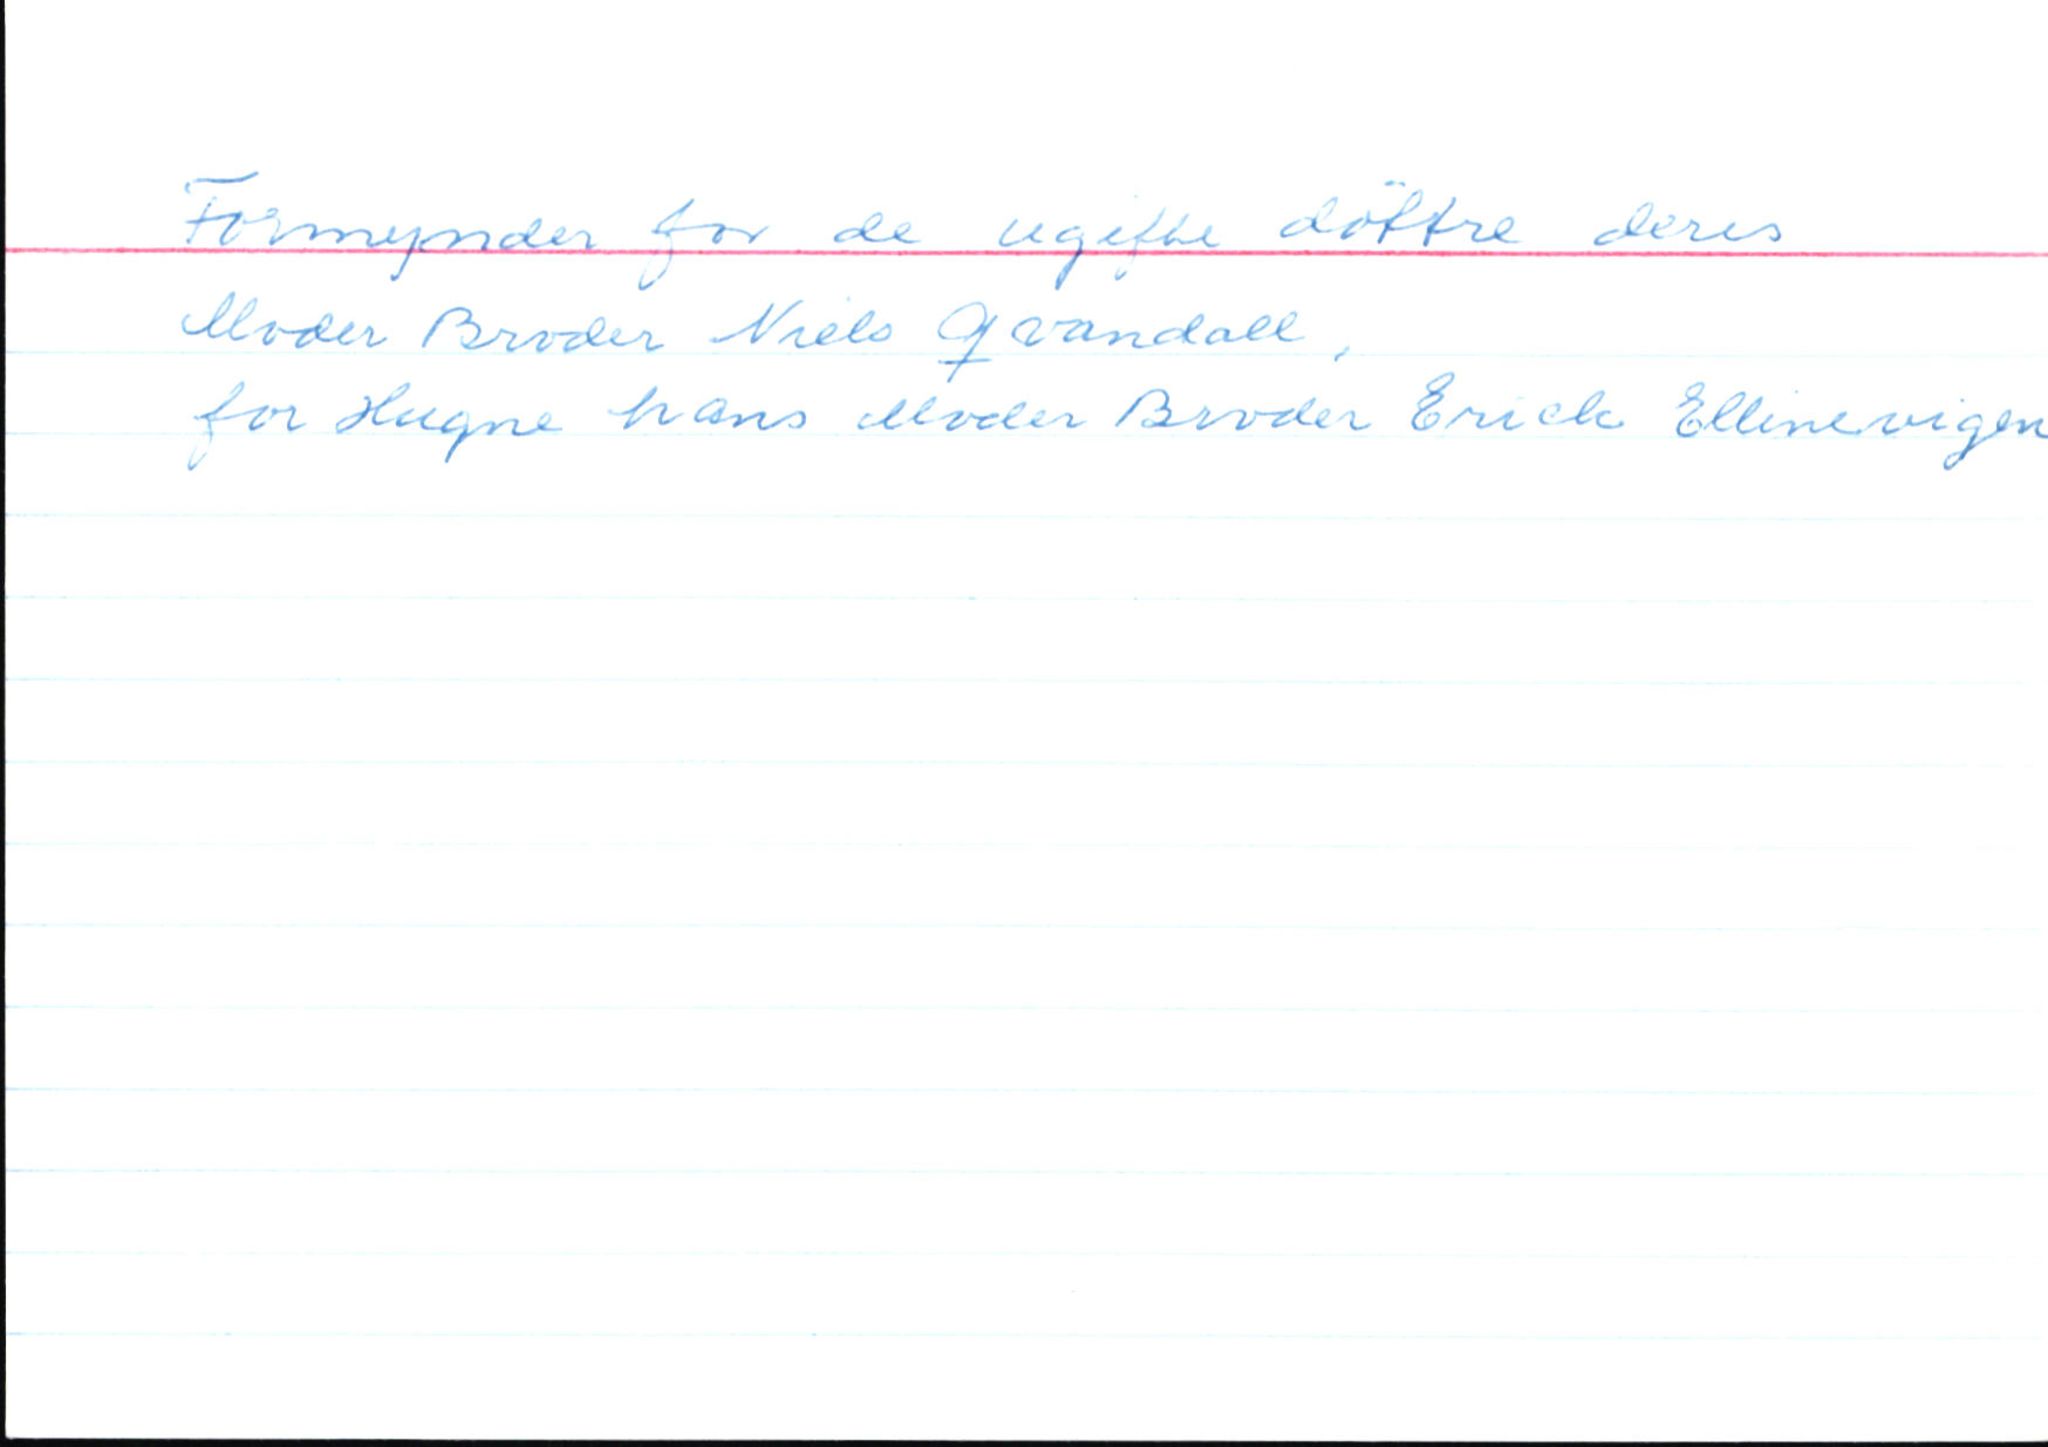 Formynder for de ugifte döttre deres
Moder Broder Niels Qvandall,
for Hugne hans Moder Broder Erick Ellinevigen